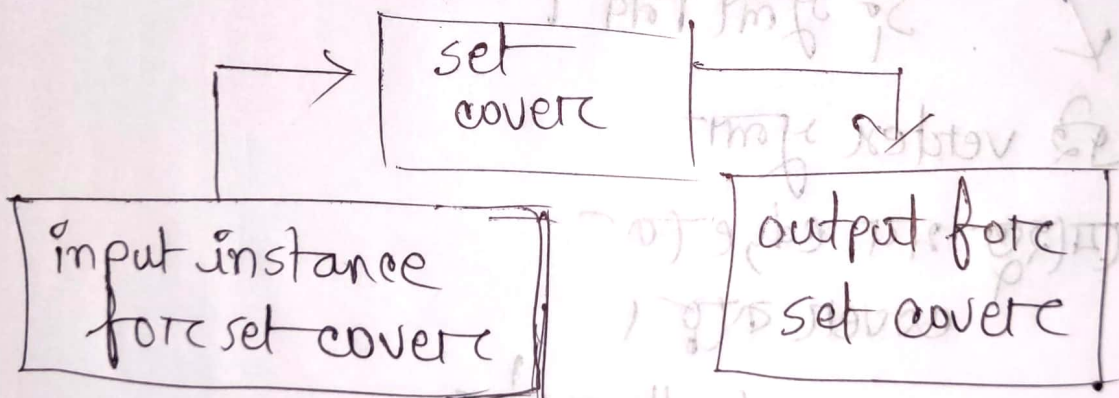 set
cover
input instance
for set cover
output for
set cover